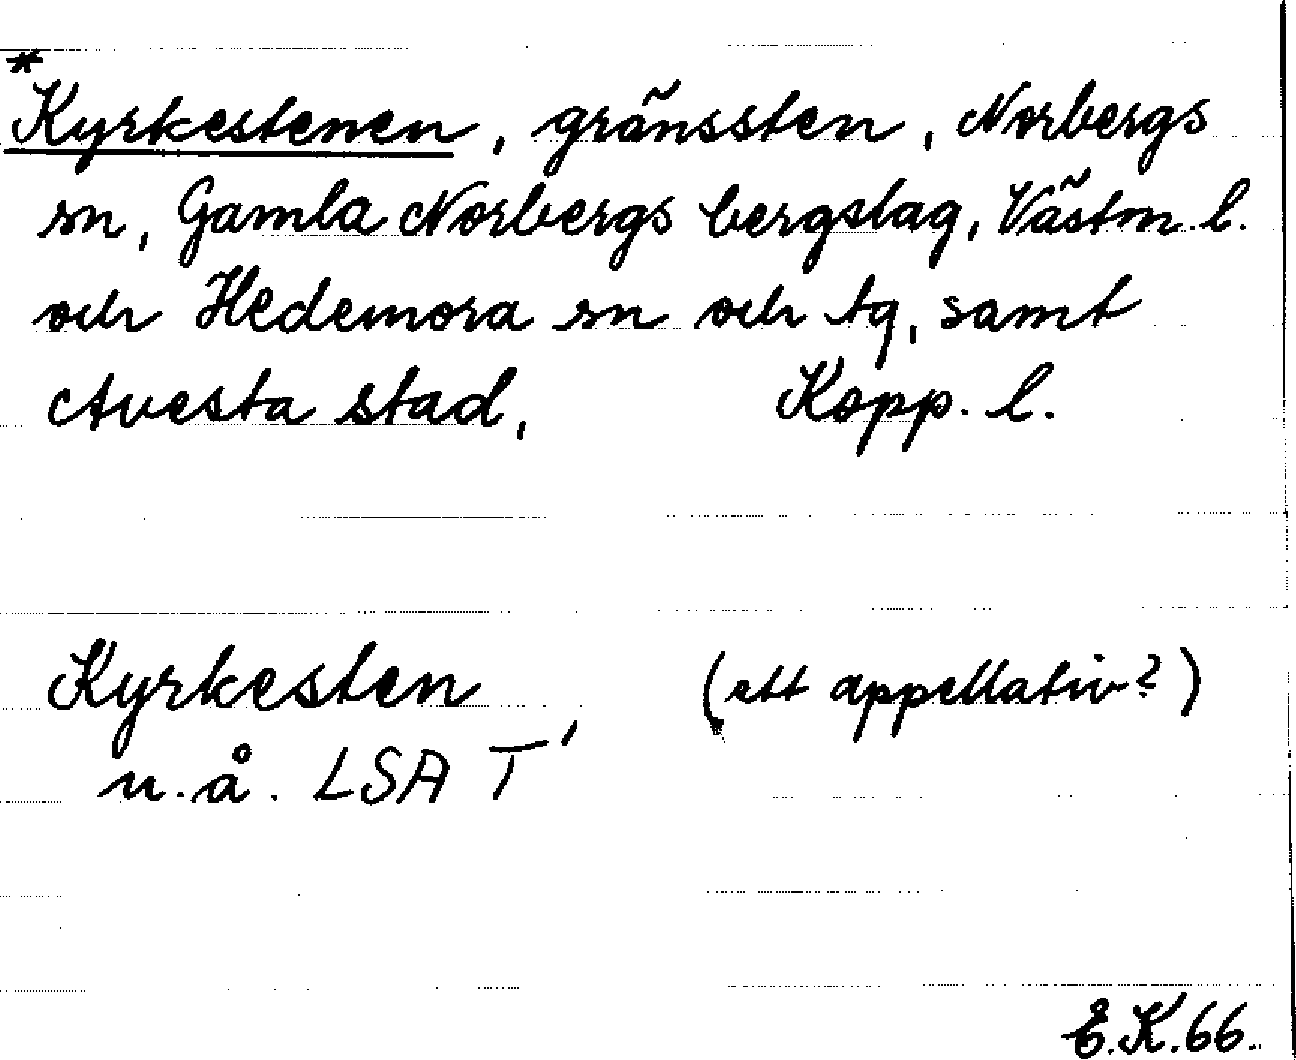 *Kyrkestenen, gränssten, Norbergs
sn, Gamla Norbergs bergslag, Västm. l.
och Hedemora sn och tg, samt
Avesta stad, Kopp. l.
Kyrkesten, (ett appellativ?)
u.å. LSA T
E.K.66.